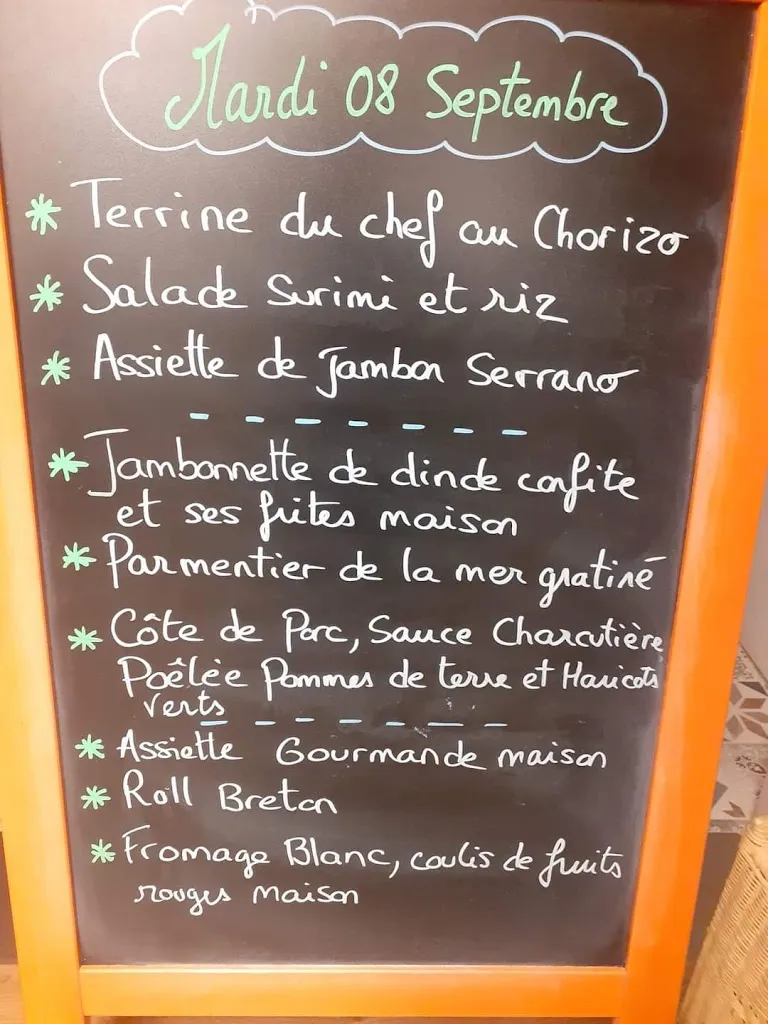 Mardi 08 Septembre
* Terrine du chef au Chorizo
* Salade Surimi et riz
* Assiette de Jambon Serrano
* Jambonnette de dinde confite
et ses frites maison
* Parmentier de la mer gratiné
* Côte de Porc, Sauce Charcutière
Poêlée Pommes de terre et Haricots
verts
* Assiette Gourmande maison
* Roll Breton
* Fromage Blanc, coulis de fruits
rouges maison